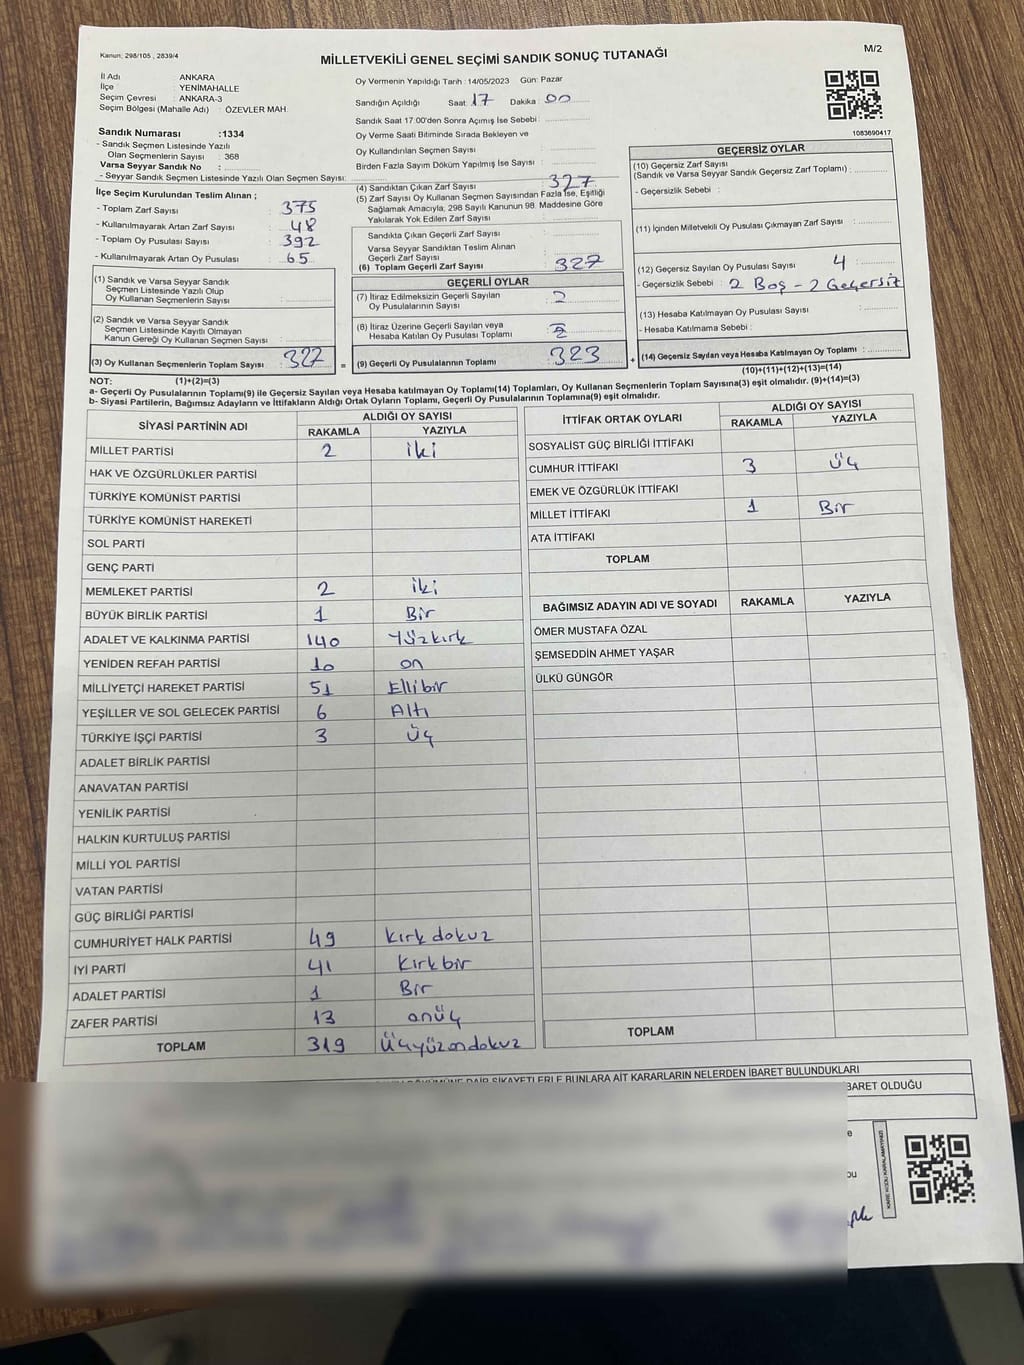 Kanun: 298/105 , 2839/4
MİLLETVEKİLİ GENEL SEÇİMİ SANDIK SONUÇ TUTANAĞI
M/2
İl Adı : ANKARA
İlçe : YENİMAHALLE
Seçim Çevresi : ANKARA-3
Seçim Bölgesi (Mahalle Adı) : ÖZEVLER MAH.
Sandık Numarası :1334
- Sandık Seçmen Listesinde Yazılı
Olan Seçmenlerin Sayısı : 368
Varsa Seyyar Sandık No :
- Seyyar Sandık Seçmen Listesinde Yazılı Olan Seçmen Sayısı:
İlçe Seçim Kurulundan Teslim Alınan ;
- Toplam Zarf Sayısı : 375
- Kullanılmayarak Artan Zarf Sayısı : 48
- Toplam Oy Pusulası Sayısı : 392
- Kullanılmayarak Artan Oy Pusulası : 65
(1) Sandık ve Varsa Seyyar Sandık
Seçmen Listesinde Yazılı Olup
Oy Kullanan Seçmenlerin Sayısı :
(2) Sandık ve Varsa Seyyar Sandık
Seçmen Listesinde Kayıtlı Olmayan
Kanun Gereği Oy Kullanan Seçmen Sayısı :
(3) Oy Kullanan Seçmenlerin Toplam Sayısı : 327 =
Oy Vermenin Yapıldığı Tarih : 14/05/2023 Gün: Pazar
Sandığın Açıldığı Saat: 17 Dakika : 00
Sandık Saat 17:00'den Sonra Açımış İse Sebebi :
Oy Verme Saati Bitiminde Sırada Bekleyen ve
Oy Kullandırılan Seçmen Sayısı :
Birden Fazla Sayım Döküm Yapılmış İse Sayısı :
(4) Sandıktan Çıkan Zarf Sayısı : 327
(5) Zarf Sayısı Oy Kullanan Seçmen Sayısından Fazla İse, Eşitliği
Sağlamak Amacıyla, 298 Sayılı Kanunun 98. Maddesine Göre
Yakılarak Yok Edilen Zarf Sayısı :
Sandıkta Çıkan Geçerli Zarf Sayısı :
Varsa Seyyar Sandıktan Teslim Alınan
Geçerli Zarf Sayısı :
(6) Toplam Geçerli Zarf Sayısı : 327
GEÇERLİ OYLAR
(7) İtiraz Edilmeksizin Geçerli Sayılan
Oy Pusulalarının Sayısı :
(8) İtiraz Üzerine Geçerli Sayılan veya
Hesaba Katılan Oy Pusulası Toplamı :
(9) Geçerli Oy Pusulalarının Toplamı : 323 +
1083690417
GEÇERSİZ OYLAR
(10) Geçersiz Zarf Sayısı
(Sandık ve Varsa Seyyar Sandık Geçersiz Zarf Toplamı) :
- Geçersizlik Sebebi :
(11) İçinden Milletvekili Oy Pusulası Çıkmayan Zarf Sayısı :
(12) Geçersiz Sayılan Oy Pusulası Sayısı : 4
- Geçersizlik Sebebi : 2 Boş - 2 Geçersiz
(13) Hesaba Katılmayan Oy Pusulası Sayısı :
- Hesaba Katılmama Sebebi :
(14) Geçersiz Sayılan veya Hesaba Katılmayan Oy Toplamı :
NOT: (1)+(2)=(3) (10)+(11)+(12)+(13)=(14)
a- Geçerli Oy Pusulalarının Toplamı(9) ile Geçersiz Sayılan veya Hesaba katılmayan Oy Toplamı(14) Toplamları, Oy Kullanan Seçmenlerin Toplam Sayısına(3) eşit olmalıdır. (9)+(14)=(3)
b- Siyasi Partilerin, Bağımsız Adayların ve İttifakların Aldığı Ortak Oyların Toplamı, Geçerli Oy Pusulalarının Toplamına(9) eşit olmalıdır.
SİYASİ PARTİNİN ADI ALDIĞI OY SAYISI
RAKAMLA YAZIYLA
MİLLET PARTİSİ 2 iki
HAK VE ÖZGÜRLÜKLER PARTİSİ
TÜRKİYE KOMÜNİST PARTİSİ
TÜRKİYE KOMÜNİST HAREKETİ
SOL PARTİ
GENÇ PARTİ
MEMLEKET PARTİSİ 2 iki
BÜYÜK BİRLİK PARTİSİ 1 Bir
ADALET VE KALKINMA PARTİSİ 140 Yüzkırk
YENİDEN REFAH PARTİSİ 10 on
MİLLİYETÇİ HAREKET PARTİSİ 51 Ellibir
YEŞİLLER VE SOL GELECEK PARTİSİ 6 Altı
TÜRKİYE İŞÇİ PARTİSİ 3 Üç
ADALET BİRLİK PARTİSİ
ANAVATAN PARTİSİ
YENİLİK PARTİSİ
HALKIN KURTULUŞ PARTİSİ
MİLLİ YOL PARTİSİ
VATAN PARTİSİ
GÜÇ BİRLİĞİ PARTİSİ
CUMHURİYET HALK PARTİSİ 49 kırk dokuz
İYİ PARTİ 41 kırkbir
ADALET PARTİSİ 1 Bir
ZAFER PARTİSİ 13 onüç
TOPLAM 319 Üçyüzondokuz
İTTİFAK ORTAK OYLARI ALDIĞI OY SAYISI
RAKAMLA YAZIYLA
SOSYALİST GÜÇ BİRLİĞİ İTTİFAKI
CUMHUR İTTİFAKI 3 Üç
EMEK VE ÖZGÜRLÜK İTTİFAKI
MİLLET İTTİFAKI 1 Bir
ATA İTTİFAKI
TOPLAM
BAĞIMSIZ ADAYIN ADI VE SOYADI RAKAMLA YAZIYLA
ÖMER MUSTAFA ÖZAL
ŞEMSEDDİN AHMET YAŞAR
ÜLKÜ GÜNGÖR
TOPLAM
DAİR ŞİKAYETLERLE BUNLARA AİT KARARLARIN NELERDEN İBARET BULUNDUKLARI
BARET OLDUĞU